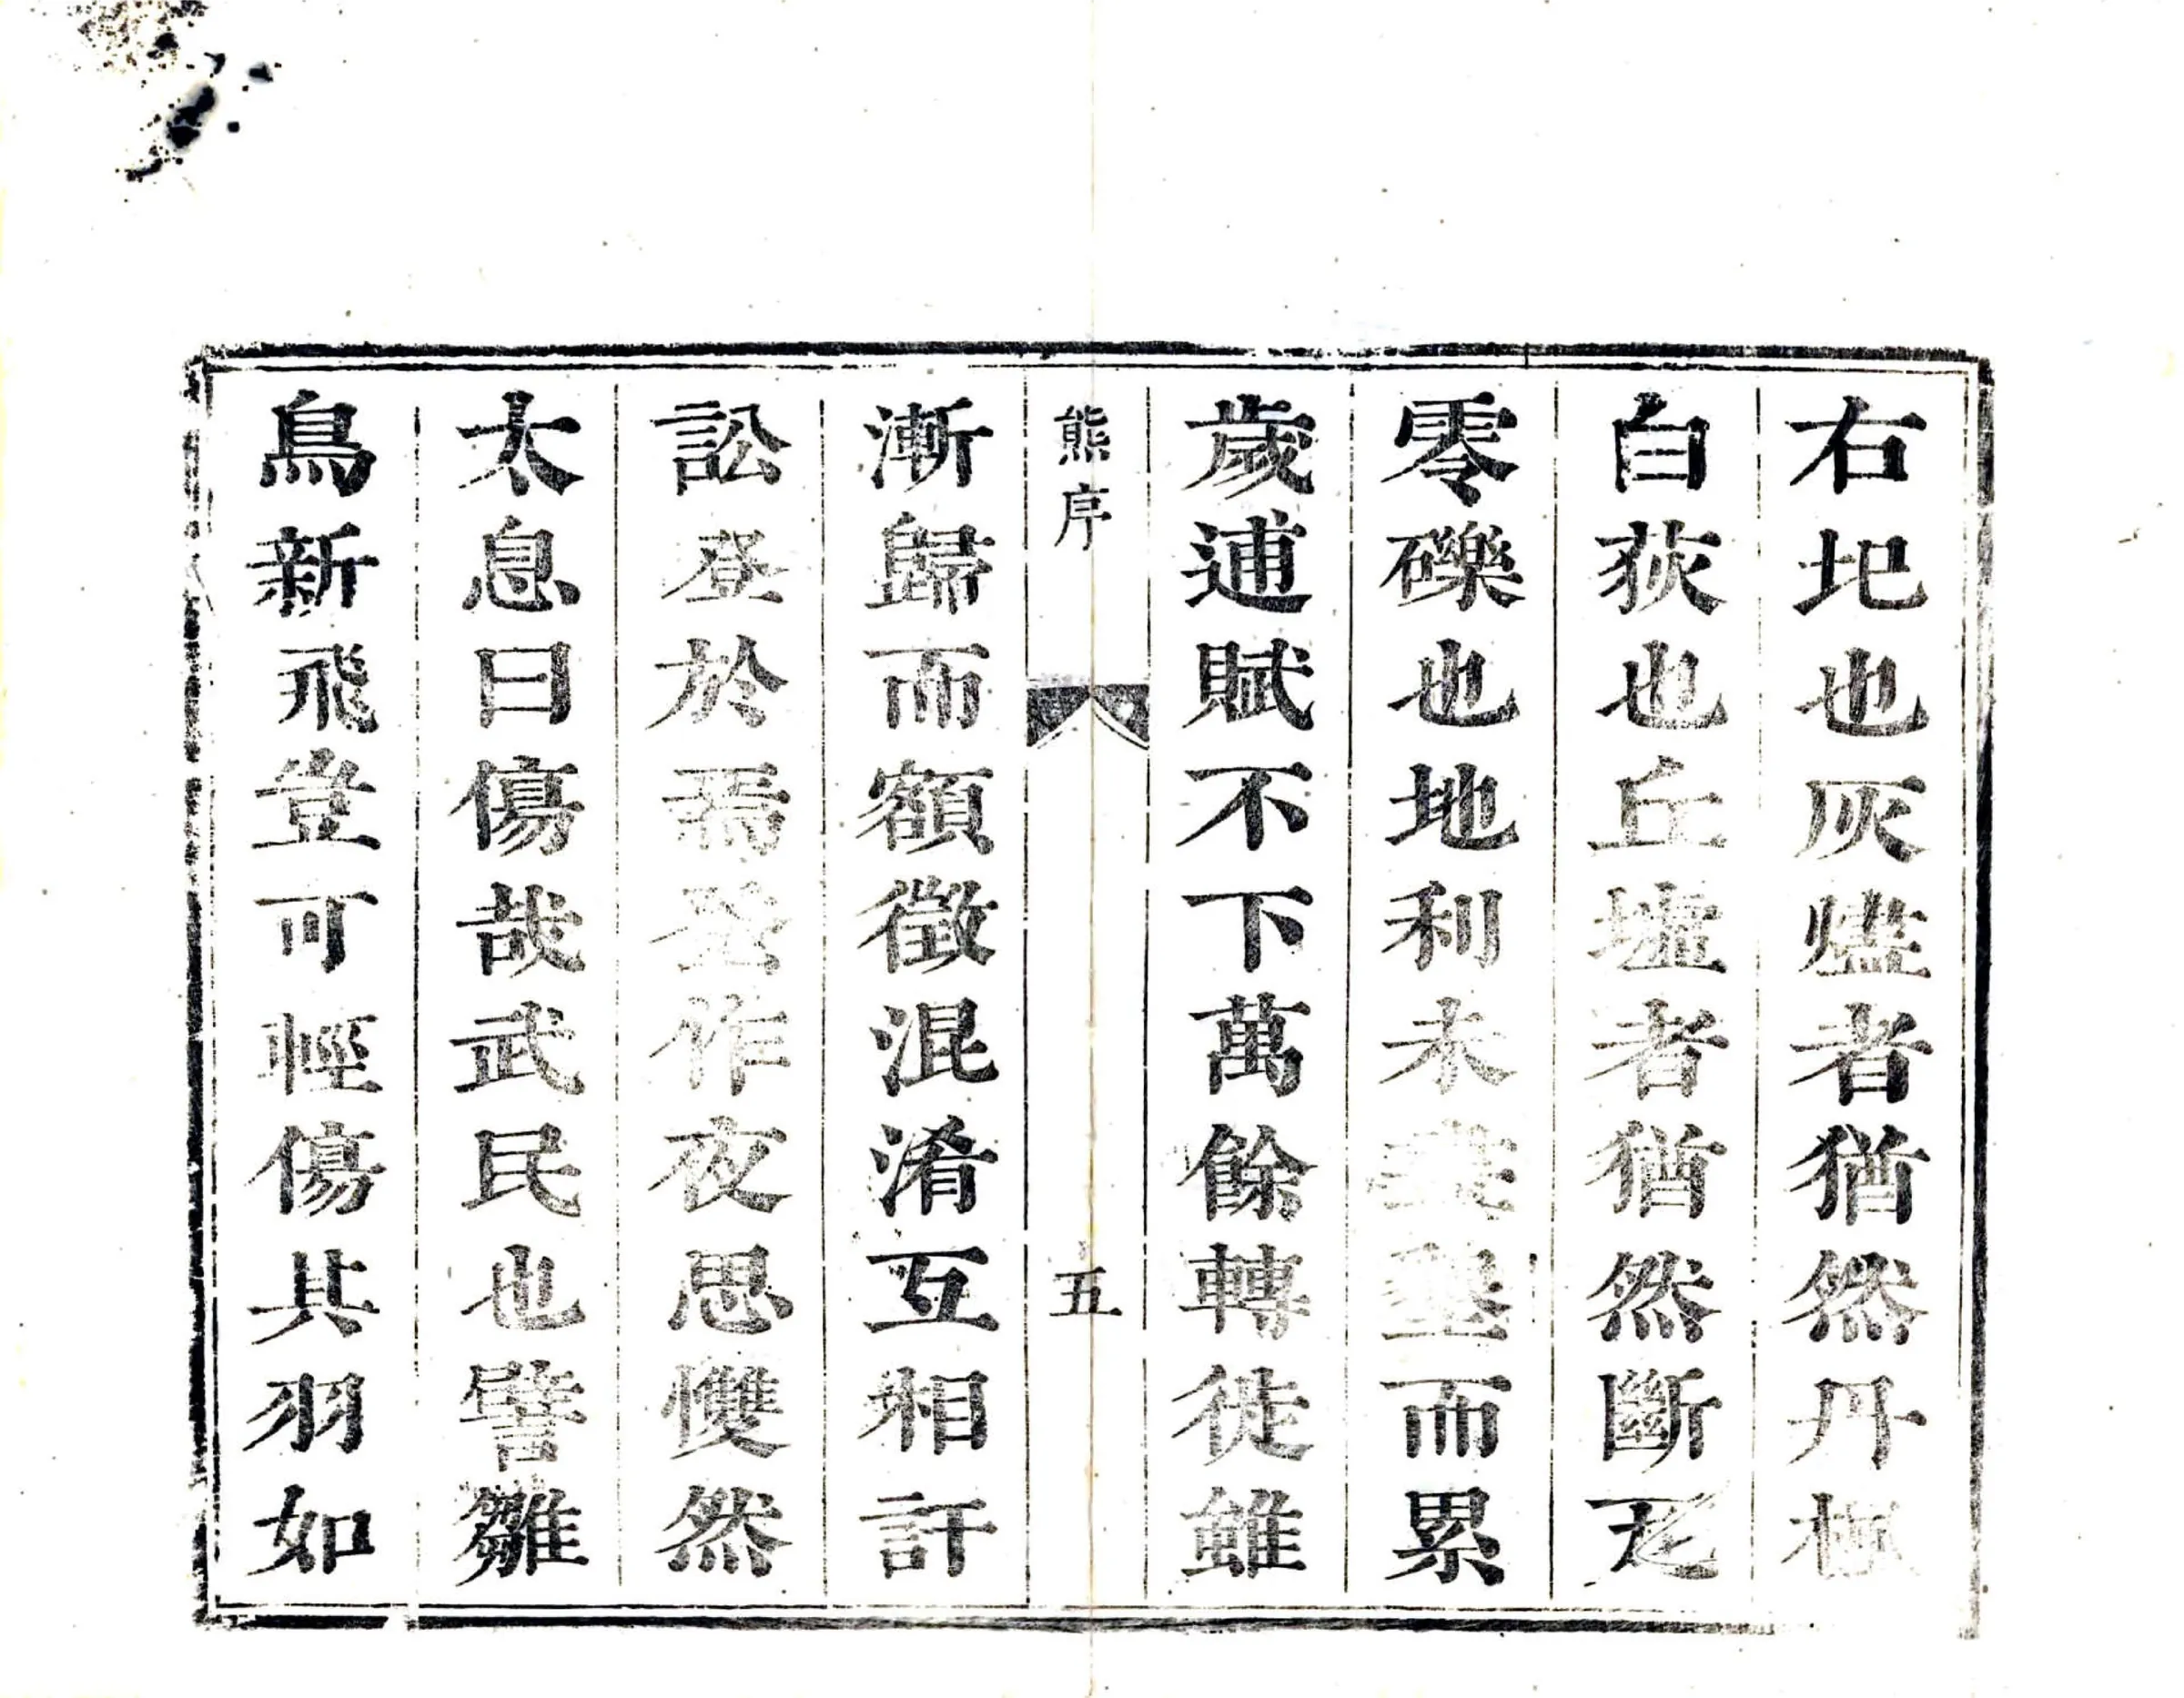 右圯也灰燼者猶然丹極
白荻也丘墟者猶然斷瓦
零礫也地利未盡墾而累
歲逋賦不下萬餘轉徙雖
熊序
五
漸歸而額徵混淆互相訐
訟登於焉發作夜思戄然
太息曰傷哉武民也譬雛
鳥新飛豈可輕傷其羽如